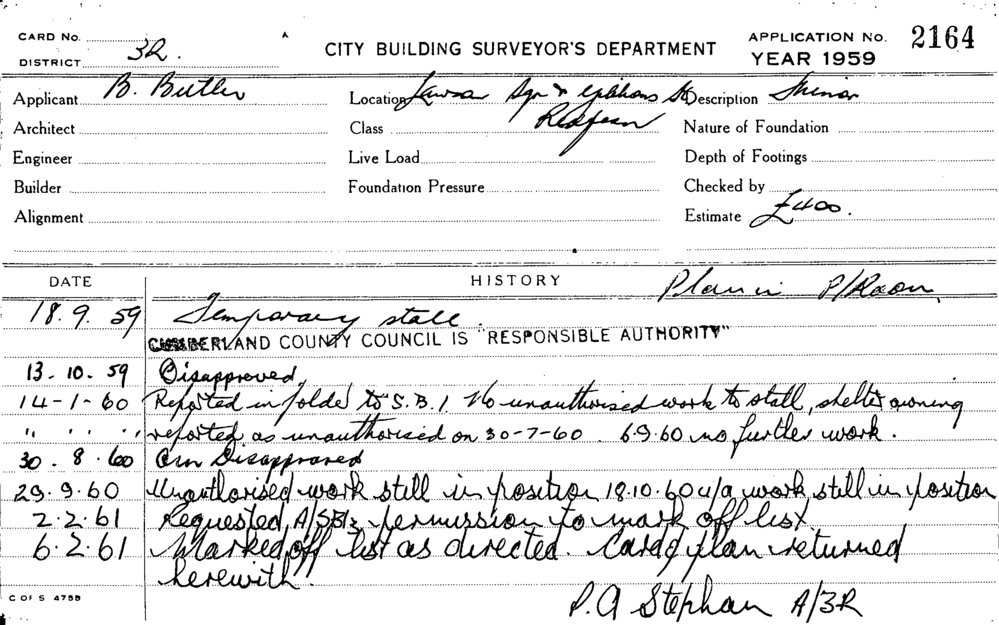 CARD No.
DISTRICT 3R.
CITY BUILDING SURVEYOR'S DEPARTMENT
APPLICATION No. 2164
YEAR 1959
Applicant B. Butler
Location Lawson Sqr & Gibbons St
Description Minor
Architect
Class Redfern
Nature of Foundation
Engineer
Live Load
Depth of Footings
Builder
Foundation Pressure
Checked by
Alignment
Estimate £400.
DATE
HISTORY
Plan in P/Room
18.9.59 Temporary stall.
CUMBERLAND COUNTY COUNCIL IS "RESPONSIBLE AUTHORITY"
13-10-59 Disapproved,
14-1-60 Reported in folder to S.B.1. No unauthorised work to stall, shelter awning
" " " reported as unauthorised on 30-7-60. 6.9.60 no further work.
30.8.60 Disapproved
29.9.60 Unauthorised work still in position 18.10.60 u/a work still in position
2.2.61 Requested permission to mark off list.
6.2.61 Marked off list as directed. Card & plan returned
herewith.
P.A Stephan A/3R
C OF S 4758